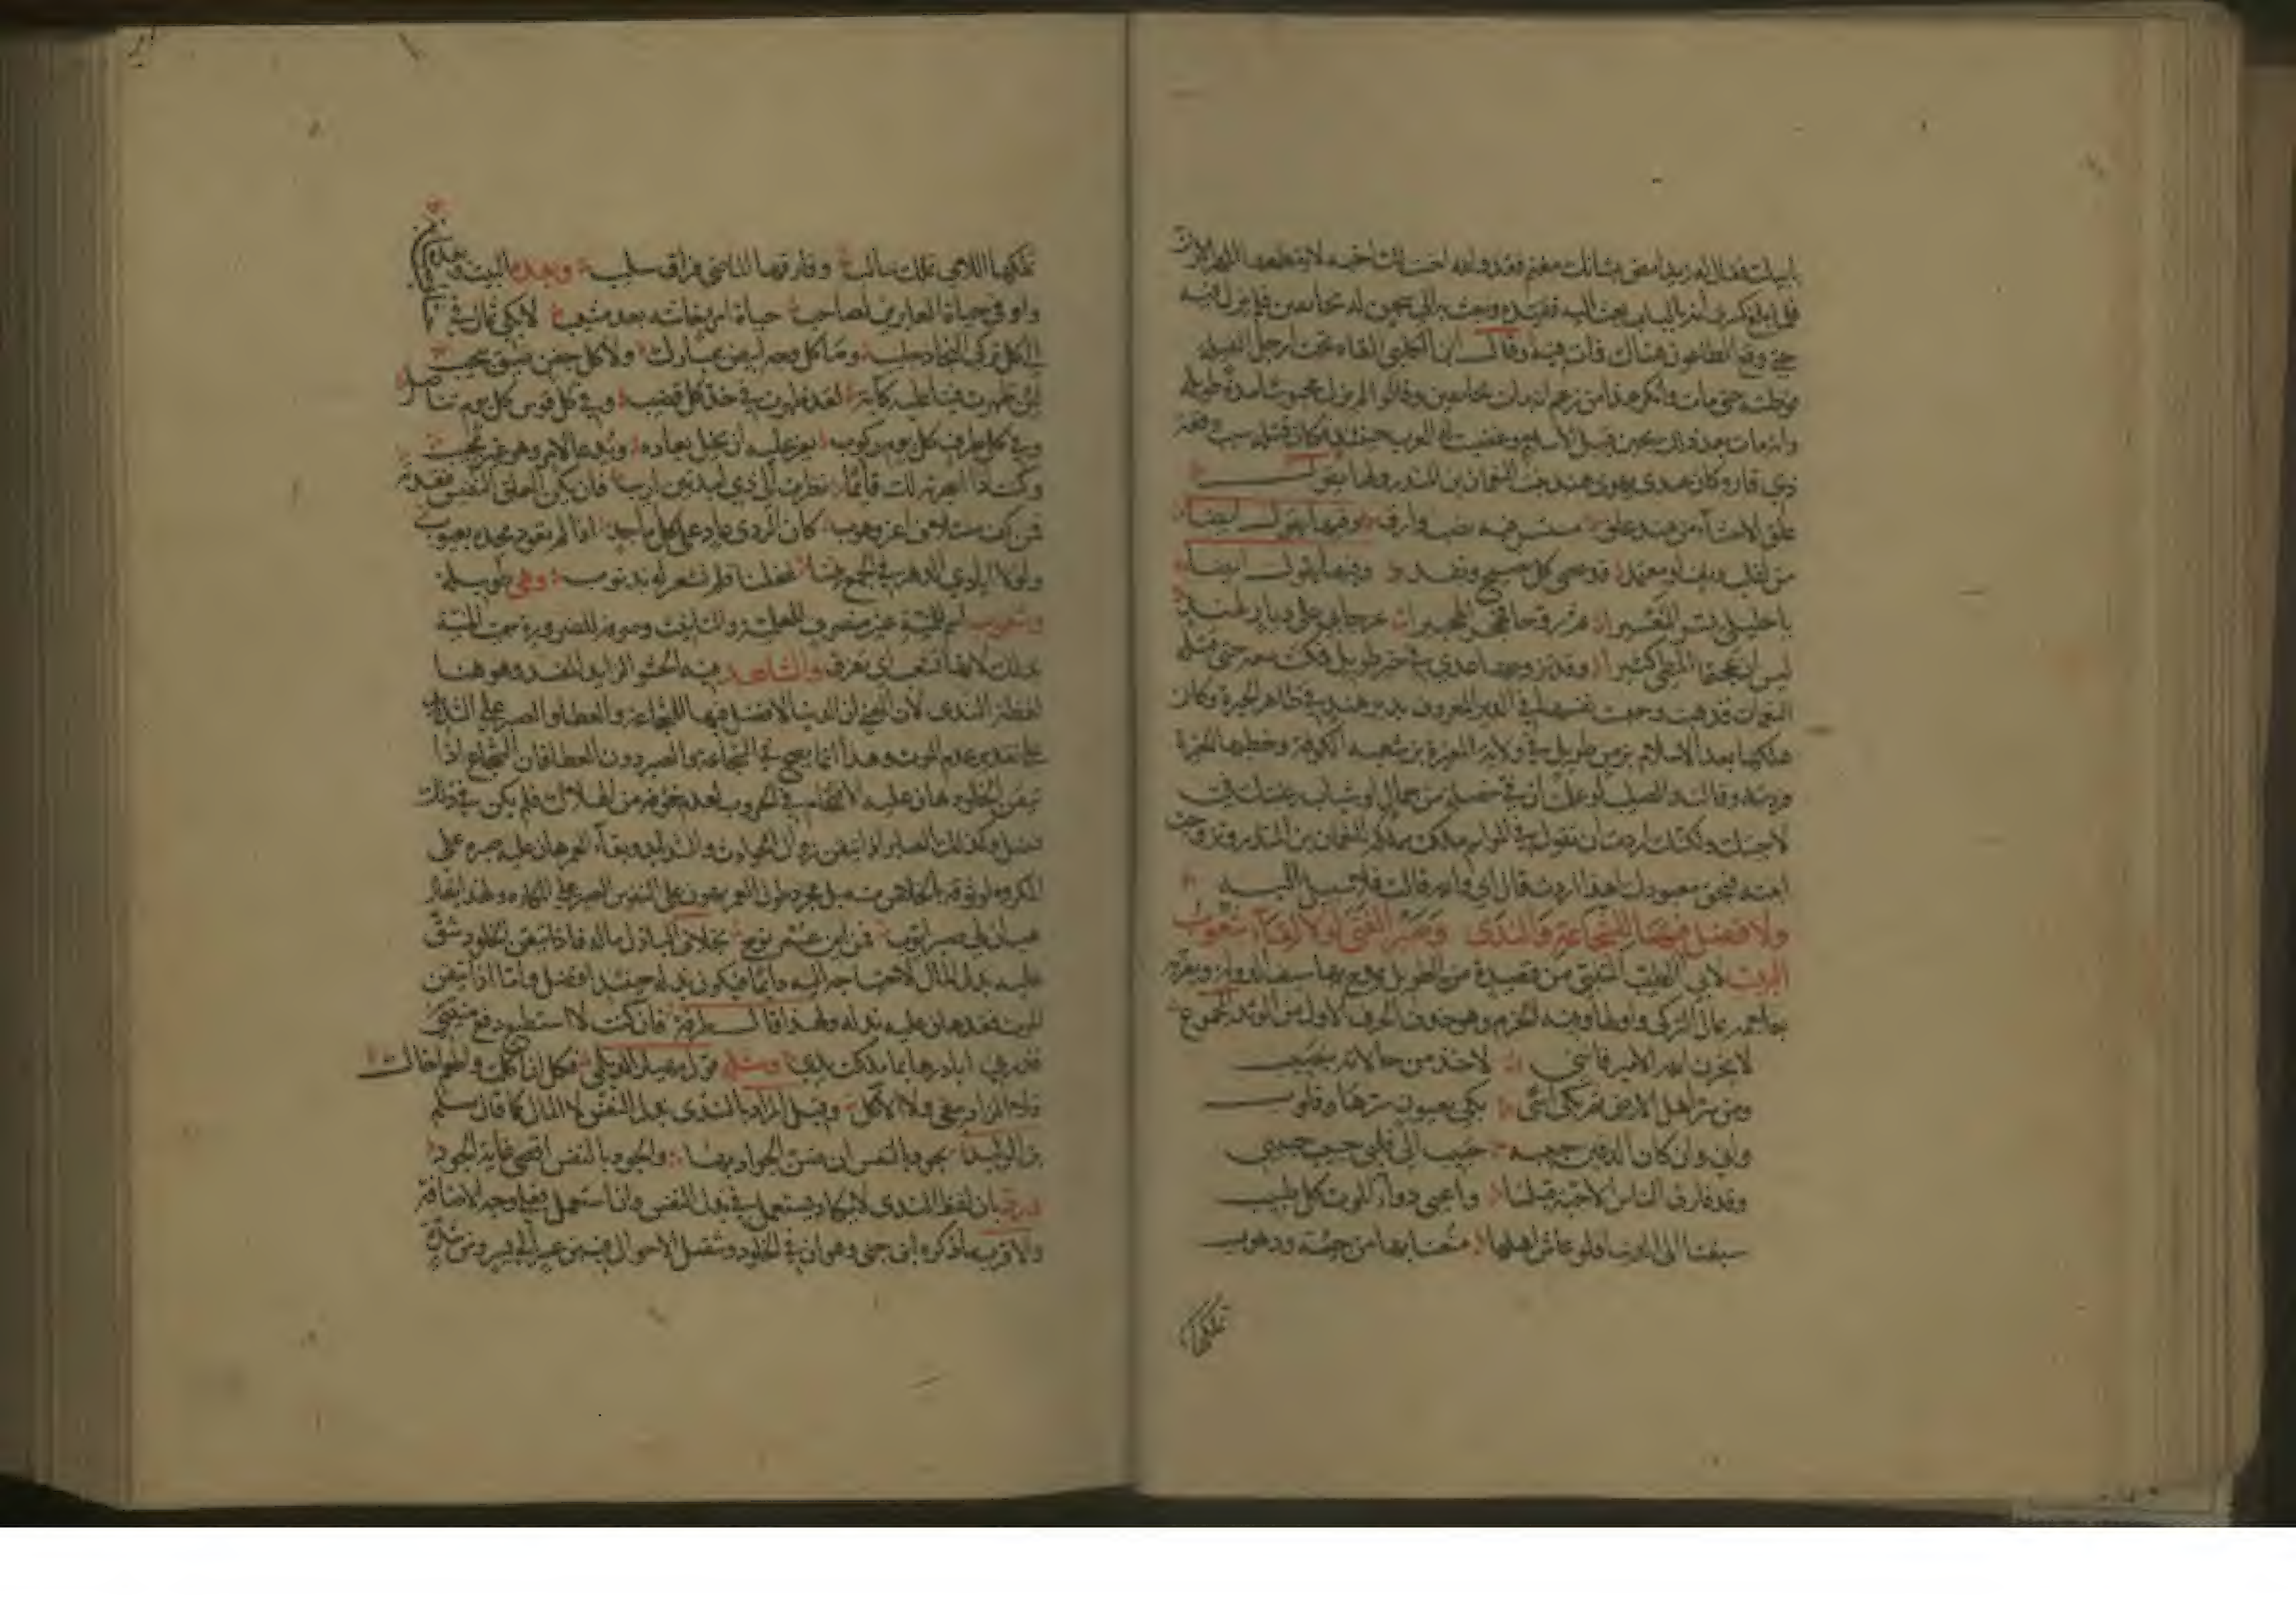 بابيك فقال له زيد امض بشانك
حتى وقع الطاعون هناك فمات فيه وقال ابن الكلبي القاه تحت ارجل الفيلة
فوطئته حتى مات وانكر هذا من زعم انه مات بخانقين وقالوا لم يزل محبوسا مدة طويلة
وانه مات بعد ذلك بحين قبيل الاسلام وغضبت له العرب حينئذ وكان قتله سبب وقعة
ذي قار وكان عدي يهوى هند بنت النعمان بن المنذر ولها يقول
علق الاحشاء من هند علق مستسر فيه نصب وارق وفيها يقول ايضا
من لقلب دنف او معتمد قد عصى كل نصيح ومفد وفيها يقول ايضا
يا خليلي يسرا التعسيرا ثم روحا فهجرا تهجيرا عرجا بي على ديار لهند
ليس ان عجتما المطي كثيرا وقد تزوجها عدي في خبر طويل فمكثت معه حتى قتله
النعمان فترهبت وحبست نفسها في الدير المعروف بدير هند في ظاهر الحيرة وكان
هلكها بعد الاسلام بزمن طويل في ولاية المغيرة بن شعبة الكوفة وخطبها المغيرة
فردته وقالت والصليب لو علمت ان في خصلة من جمال او شباب رغبتك في
لاجبتك ولكنك اردت ان تقول في المواسم ملكت مملكة النعمان بن المنذر وتزوجت
ابنته فبحق معبودك اهذا اردت قال اي والله قالت فلا سبيل اليه
ولا فضل فيها للشجاعة والندى وصبر الفتى لولا لقاء شعوب
البيت لابي الطيب المتنبي من قصيدة من الطويل يمدح بها سيف الدولة ويعزيه
بغلامه يماك التركي واولها وفيه الخرم وهو حذف الحرف الاول من الوتد المجموع
لا يحزن الله الامير فانني لاخذ من حالاته بنصيب
ومن سر اهل الارض ثم بكى اسى بكى بعيون سرها وقلوب
واني وان كان الدفين حبيبه حبيب الى قلبي حبيب حبيبي
وقد فارق الناس الاحبة قبلنا واعيى دواء الموت كل طبيب
سبقنا الى الدنيا فلو عاش اهلها منعنا بها من جيئة وذهوب
تملكها
تملكها الاتي تملك سالب وفارقها الماضي فراق سليب وبعده البيت وبعده
واوفى حياة الغابرين لصاحب حياة امرئ خانته بعد مشيب لابقى يماك في
الى كل تركي النجار جليب وما كل وجه ابيض بمبارك ولا كل جفن ضيق بنجيب
لئن ظهرت فينا عليه كآبة لقد ظهرت في حد كل قضيب وفي كل قوس كل يوم تناضل
وفي كل طرف كل يوم ركوب يعز عليه ان يخل بعادة وتدعو لامر وهو غير مجيب
وكنت اذا ابصرته لك قائما نظرت الى ذي لبدتين اديب فان يكن العلق النفيس فقدته
فمن كف متلاف اغر وهوب كان الردى عاد على كل ماجد اذا لم يعوذ مجده بعيوب
ولولا ايادي الدهر في الجمع بيننا غفلنا فلم نشعر له بذنوب وهي طويلة
وشعوب اسم للمنية غير منصرف للعلمية والتانيث وصرفه للضرورة سميت المنية
بذلك لانها تشعب اي تفرق والشاهد فيه الحشو الزايد المفسد وهو هنا
لفظة الندى لان المعنى ان الدنيا لا فضل فيها للشجاعة والعطا والصبر على الشدايد
على تقدير عدم الموت وهذا انما يصح في الشجاعة والصبر دون العطا فان الشجاع اذا
تيقن الخلود هان عليه الاقتحام في الحروب لعدم خوفه من الهلاك فلم يكن في ذلك
فضل وكذلك الصابر اذا تيقن زوال الحوادث والشدايد وبقاء العمر هان عليه صبره على
المكروه لوثوقه بالخلاص منه بل مجرد طول العمر يهون على النفوس الصبر على المكاره ولهذا يقال
هب ان لي صبر ايوب فمن اين عمر نوح بخلاف الباذل ماله فاذا تيقن الخلود شق
عليه بذل المال لاحتياجه اليه دايما فيكون بذله حينئذ افضل واما اذا تيقن
الموت فقد هان عليه بذله ولهذا قال طرفة فان كنت لا تستطيع دفع منيتي
فذرني ابادرها بما ملكت يدي ومثله قول مهيار الديلمي فكل ان اكلت واطعم اخاك
فلا الزاد يبقى ولا الآكل وقيل المراد بالندى بذل النفس لا المال كما قال مسلم
بن الوليد يجود بالنفس ان ضن الجواد بها والجود بالنفس اقصى غاية الجود
ورد بان لفظ الندى لا يكاد يستعمل في بذل النفس وان استعمل فعلى وجه الاضافة
والاقرب ما ذكره ابن جني وهو ان في الخلود وتنقل الاحوال فيه من عسر الى يسر ومن شدة